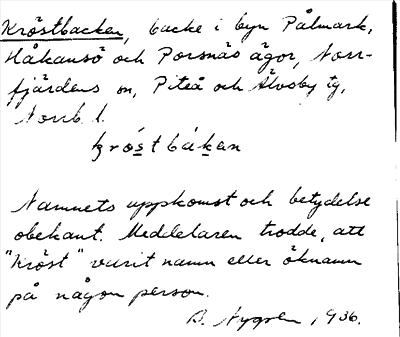 Kröstbacken, backe i byn Pålmark,
Håkansö och Porsnäs ägor, Norr-
fjärdens sn, Piteå och Älvsby tg,
Norrb. l.
króstbákan
Namnets uppkomst och betydelse
obekant. Meddelaren trodde, att
"Kröst" varit namn eller öknamn
på någon person.
B. Nygren 1936.